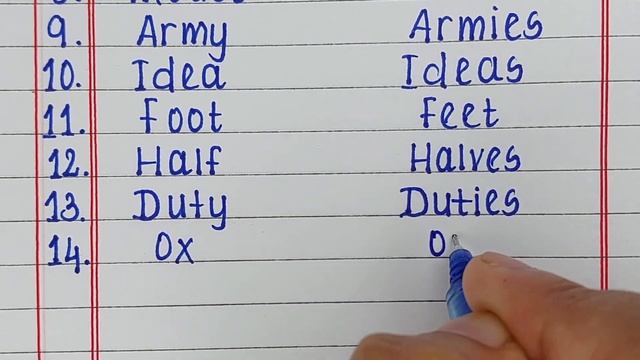 9. Army Armies
10. Idea Ideas
11. Foot Feet
12. Half Halves
13. Duty Duties
14. Ox O